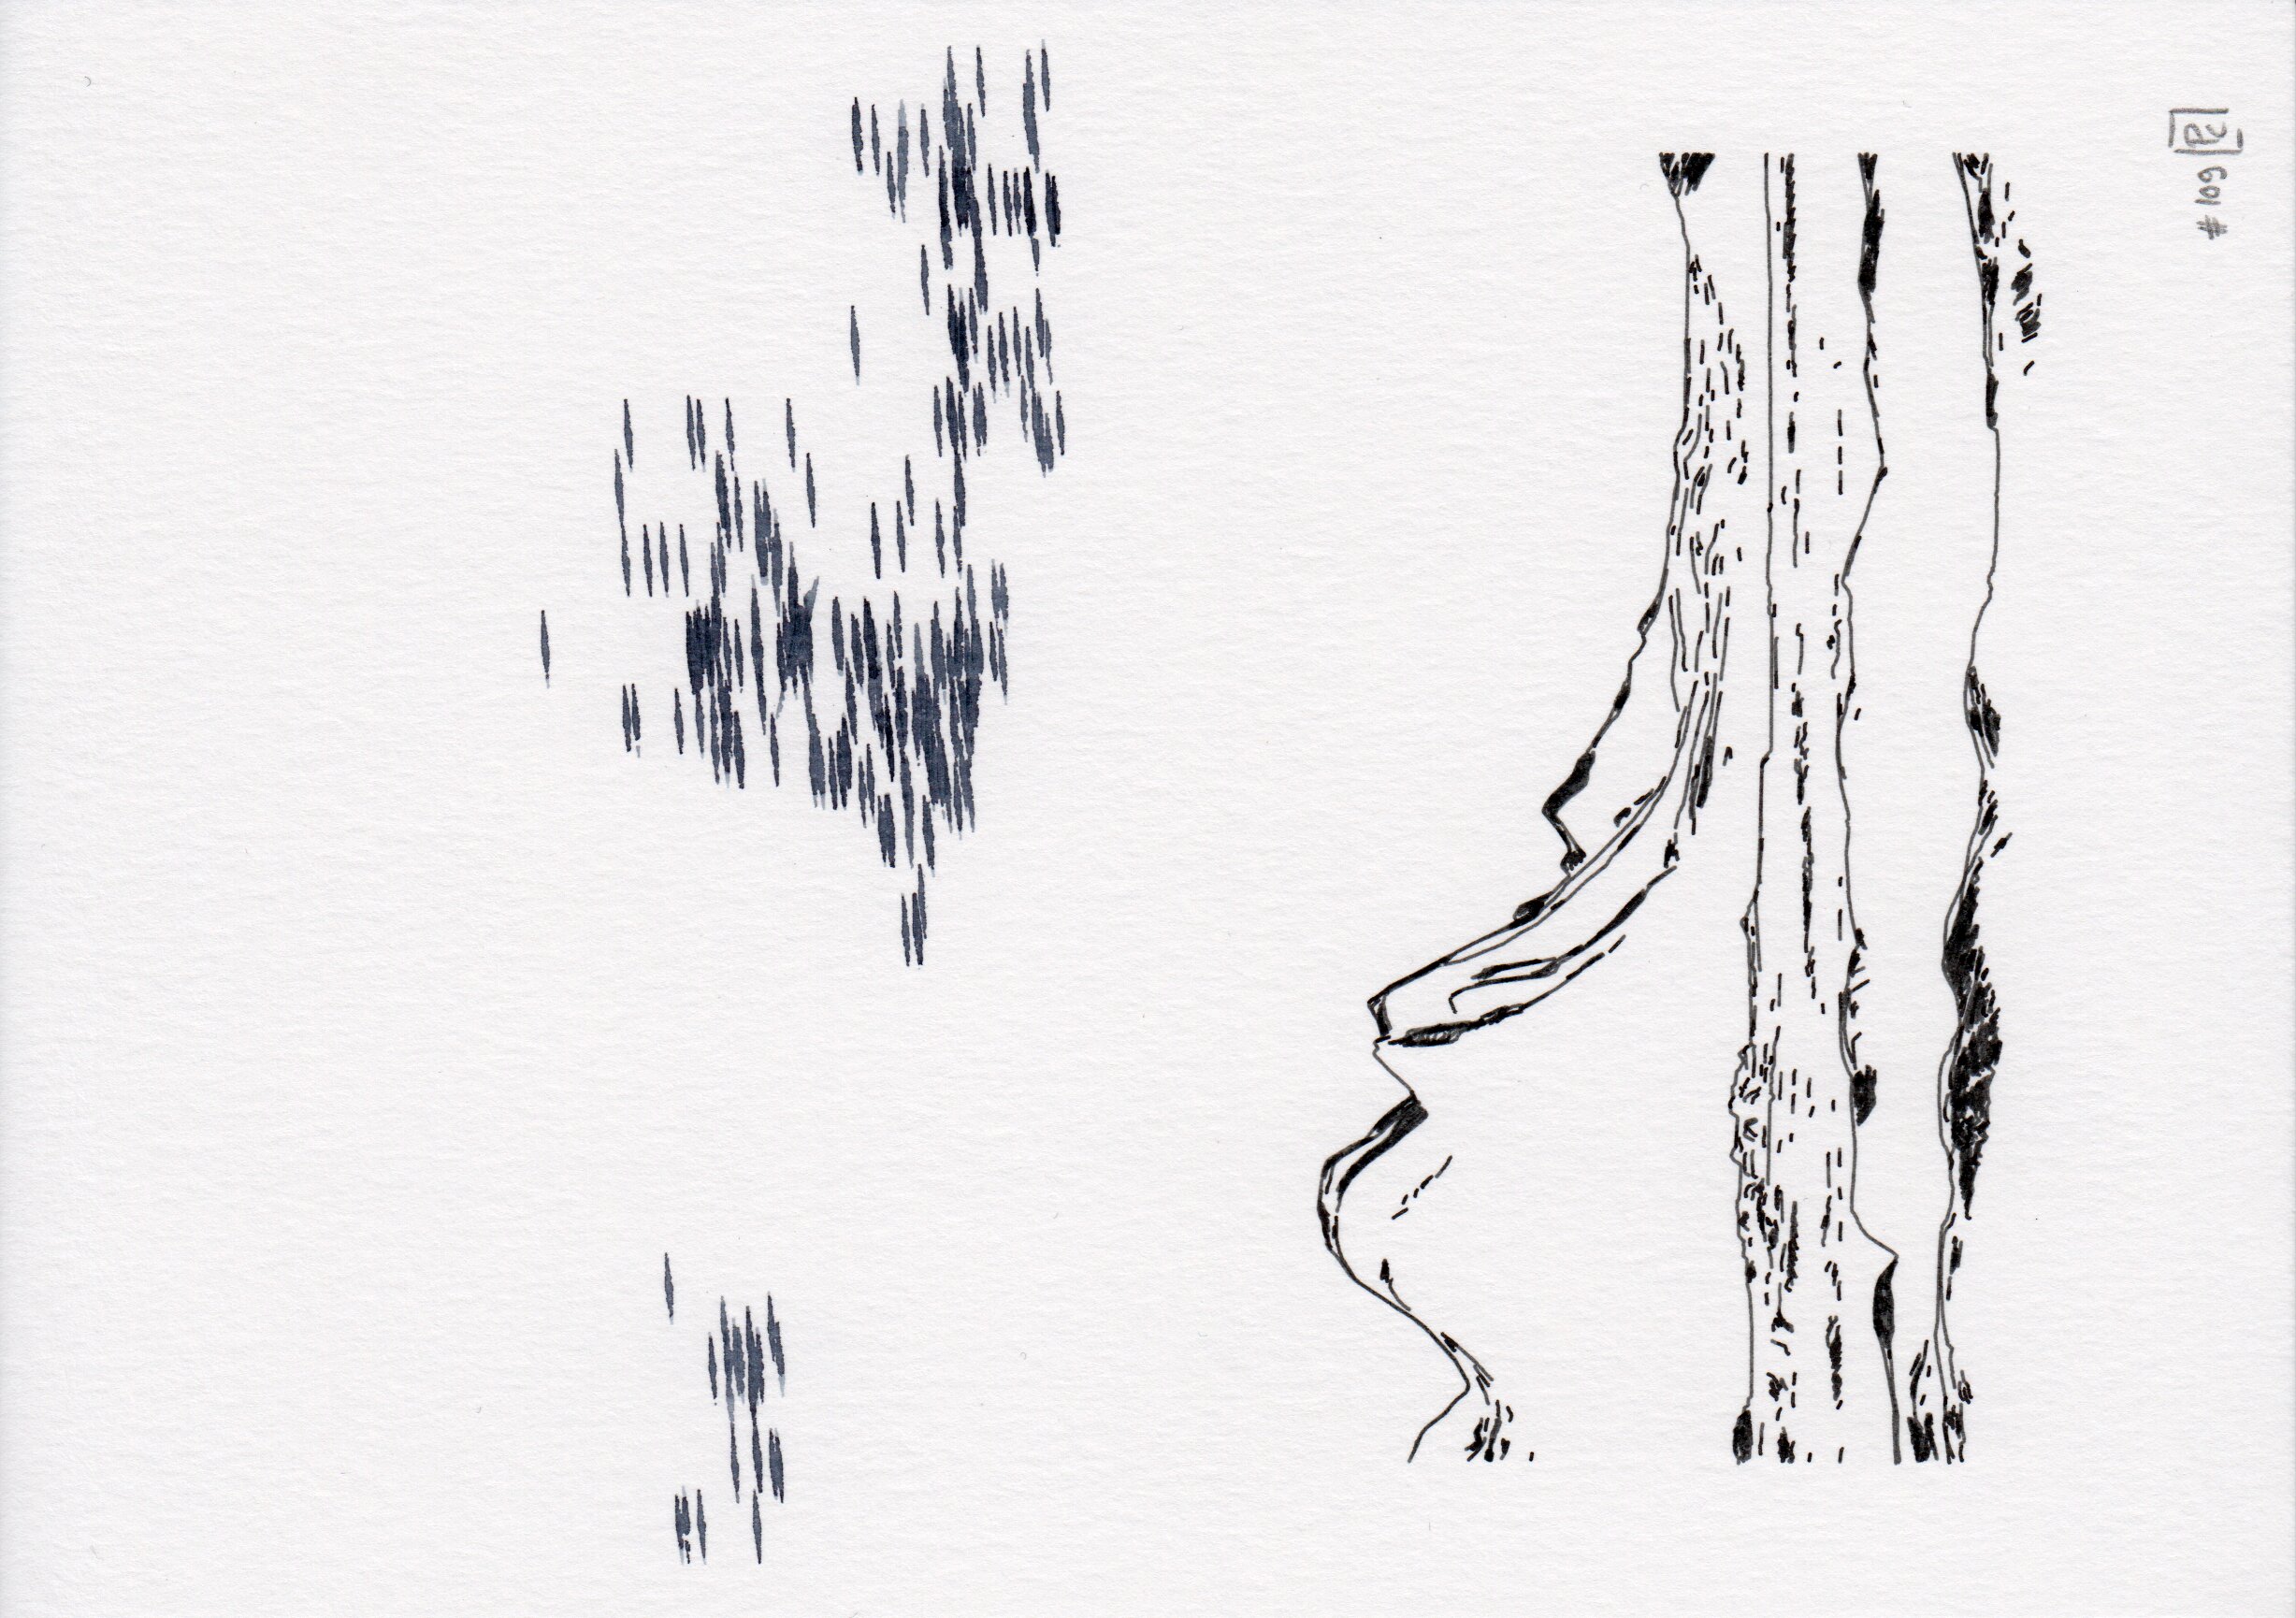 #109 PC